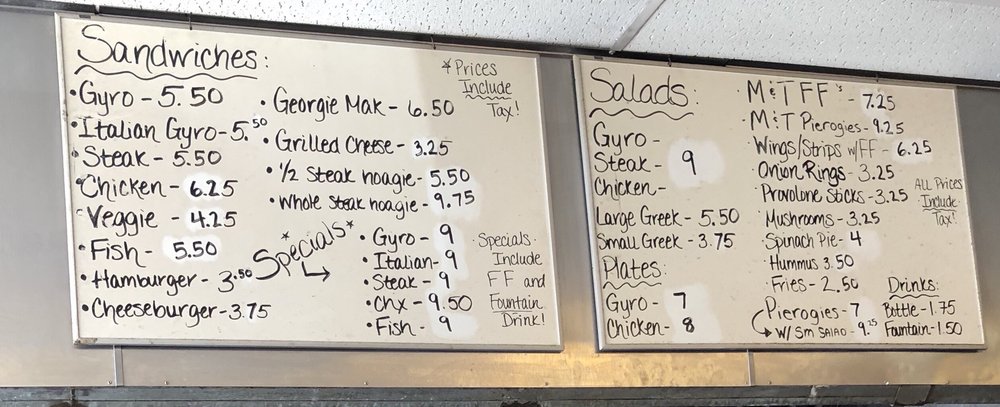 Sandwiches:
• Gyro - 5.50
• Italian Gyro - 5.50
• Steak - 5.50
• Chicken - 6.25
• Veggie - 4.25
• Fish - 5.50
• Hamburger - 3.50
• Cheeseburger - 3.75
*Prices
Include
Tax!
• Georgie Mak - 6.50
• Grilled Cheese - 3.25
• 1/2 Steak hoagie - 5.50
• Whole Steak hoagie - 9.75
*Specials*
• Gyro - 9
• Italian - 9
• Steak - 9
• Chx - 9.50
• Fish - 9
Specials
Include
FF and
Fountain
Drink!
Salads:
Gyro -
Steak - 9
Chicken -
Large Greek - 5.50
Small Greek - 3.75
Plates:
Gyro - 7
Chicken - 8
• M&T FF's - 7.25
• M&T Pierogies - 9.25
• Wings/Strips w/FF - 6.25
• Onion Rings - 3.25
• Provolone Sticks - 3.25
• Mushrooms - 3.25
• Spinach Pie - 4
• Hummus 3.50
• Fries - 2.50
Pierogies - 7
w/ Sm Salad - 9.25
ALL Prices
Include
Tax!
Drinks:
Bottle - 1.75
Fountain - 1.50